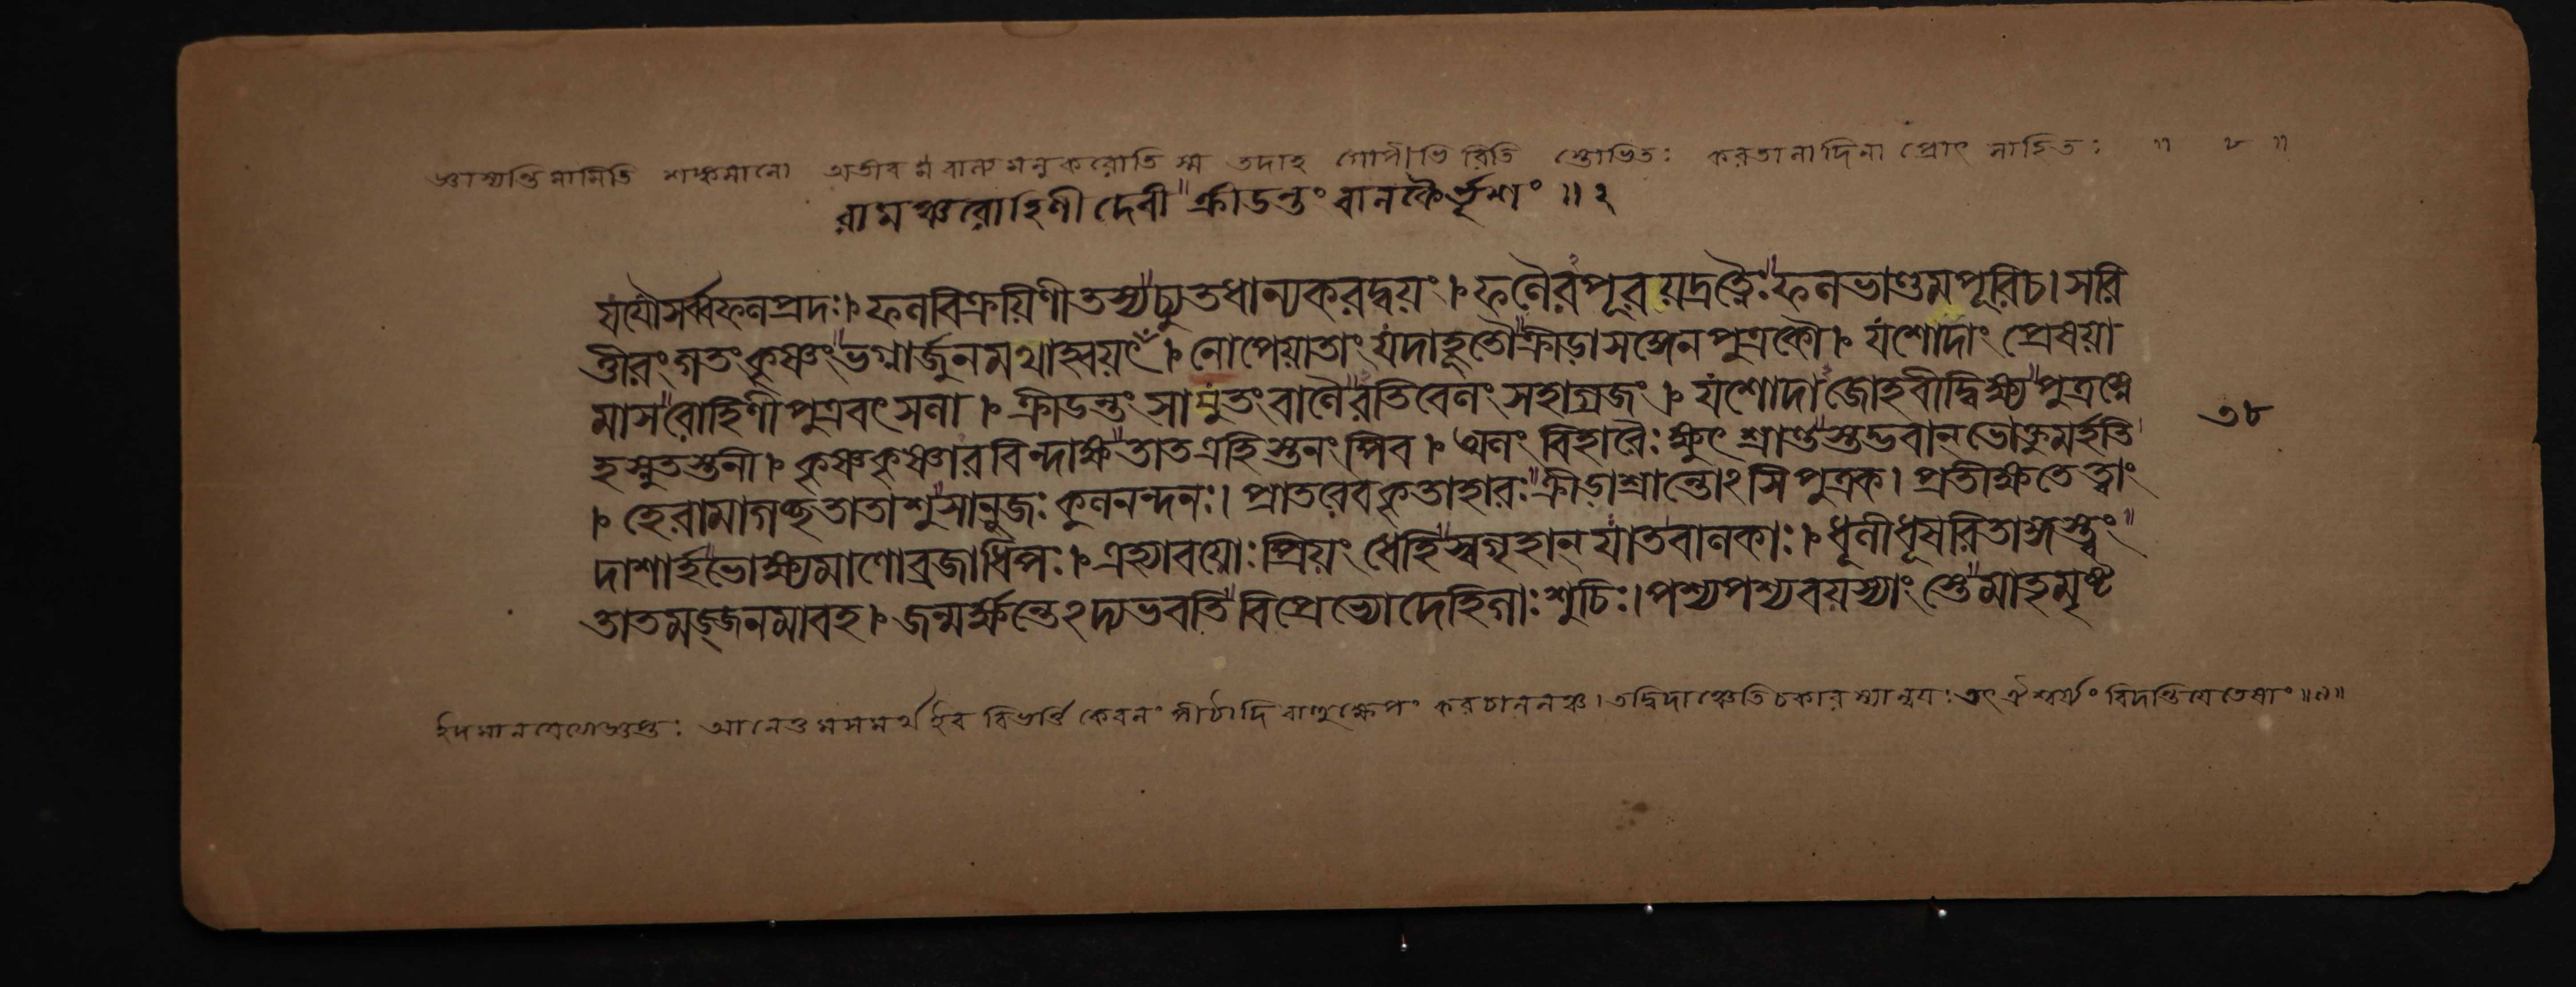 জ্ঞাস্যন্তি মামিতি শঙ্কমানো অতীব মৰ বালমনুকরোতি স্ম তদাহ গোপীভিরিতি স্তোভিতঃ করতালাদিনা প্রোৎসাহিতঃ ॥ ৮ ॥
রামঞ্চরোহিণীদেবী ক্রীডন্তংবালকৈর্ভৃশং ॥ ২
যযৌসর্ব্বফলপ্রদঃ। ফলবিক্রয়িণীতস্যচ্যুতধান্যকরদ্বয়ং। ফলৈরপূরয়দ্রত্নৈঃফলভাণ্ডমপূরিচ। সরি
ত্তীরংগতংকৃষ্ণংভগ্নার্জুনমথাহ্বয়ৎ। নোপেয়াতাং যদাহূতৌক্রীড়াসঙ্গেনপুত্রকৌ। যশোদাং প্রেষয়া
মাসরোহিণীপুত্রবৎসলা। ক্রীডন্তং সাসুতংবালৈরতিবেলংসহাগ্রজং। যশোদাজোহবীদ্বিক্ষ্যপুত্রস্নে
হস্নুতস্তনী। কৃষ্ণকৃষ্ণারবিন্দাক্ষতাতএহিস্তনংপিব। অলং বিহারৈঃ ক্ষুৎ শ্রান্তস্তদ্ভবান্ ভোক্তুমর্হতি
। হেরামাগচ্ছতাতাশুসানুজঃ কুলনন্দনঃ। প্রাতরেবকৃতাহারঃক্রীড়াশ্রান্তোঽসি পুত্রক। প্রতীক্ষতে ত্বাং
দাশার্হভোক্ষ্যমাণোব্রজাধিপঃ। এহ্যাবয়োঃ প্রিয়ং ধেহি স্বগৃহান্ যাতবালকাঃ। ধূলীধূষরিতাঙ্গস্ত্বং
তাতমজ্জনমাবহ। জন্মর্ক্ষন্তেঽদ্যভবতি বিপ্রেভ্যোদেহিগাঃ শুচিঃ। পশ্যপশ্যবয়স্যাংস্তেমাতৃমৃষ্ট
৩৮
আনেতুমসমর্থইব বিভর্ত্তি কেবলং পীঠাদি বাহুক্ষেপং করচালনঞ্চ। তদ্বিদাঞ্চেতিচকারস্যান্বয়ঃ তৎ ঐশ্বর্য্যং বিদন্তিযেতেষাং ॥ ৯ ॥